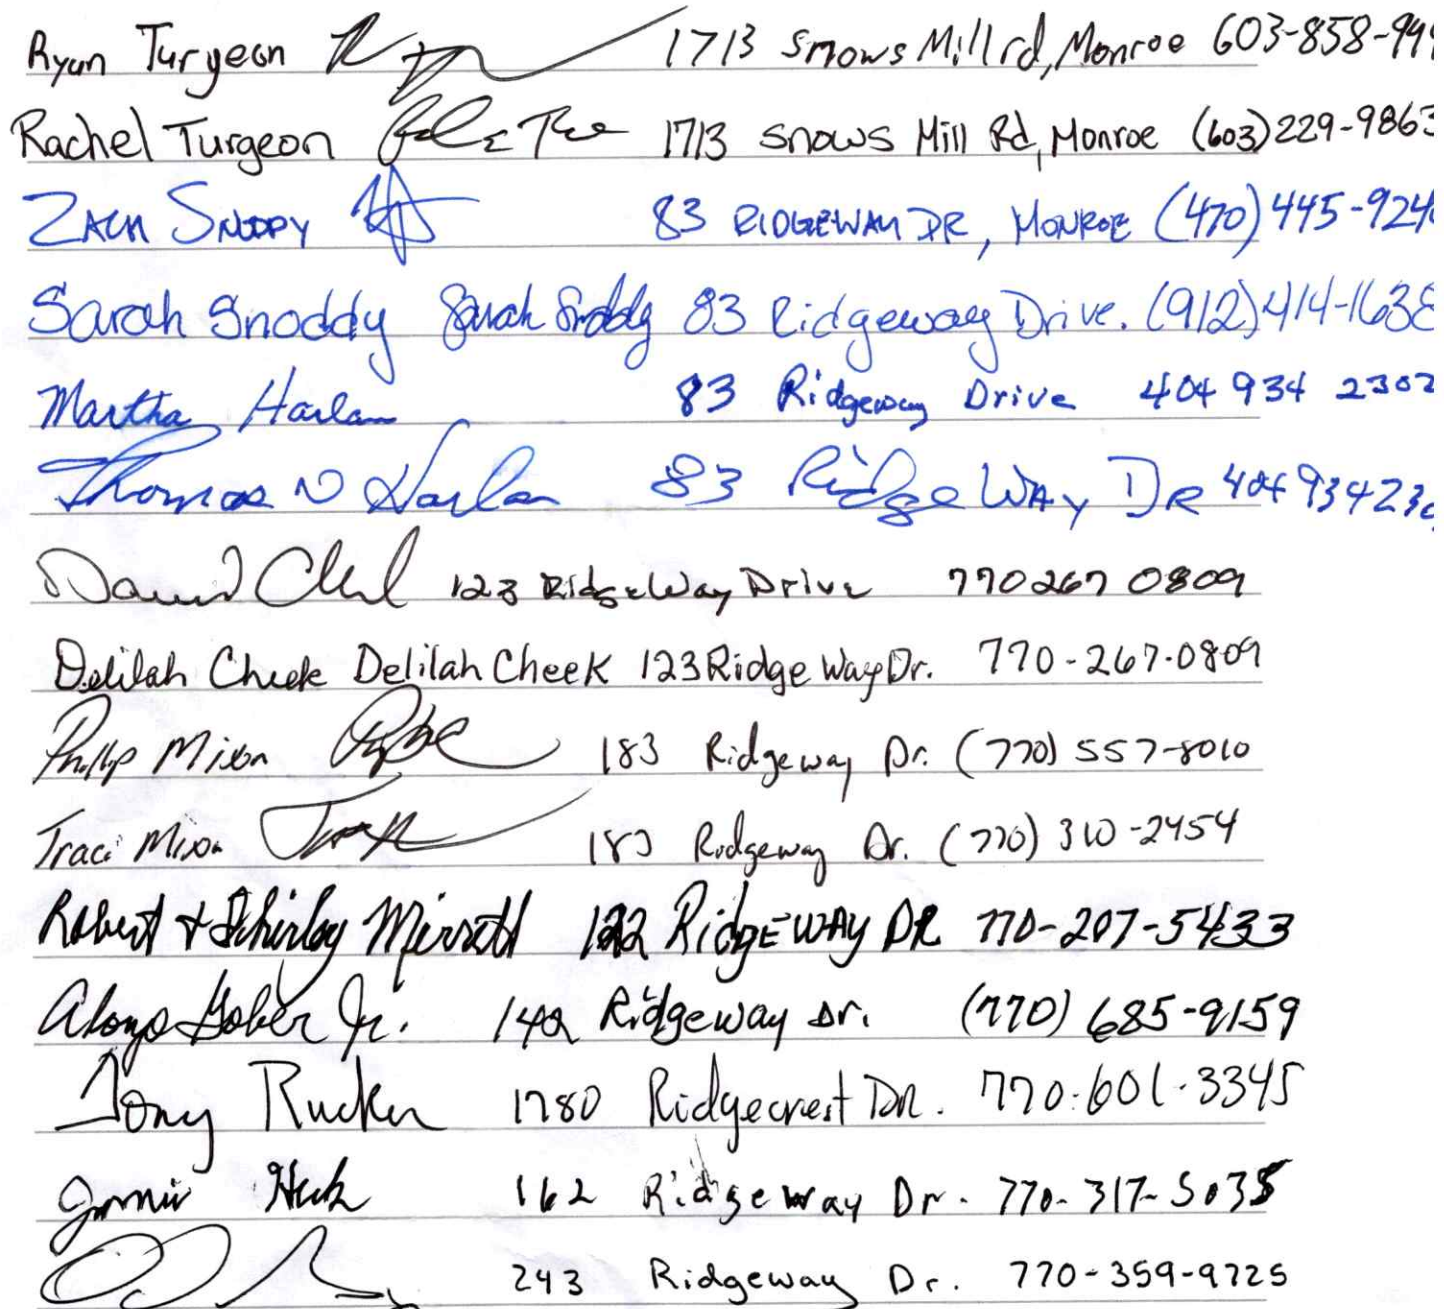 Ryan Turgeon 1713 Snows Mill rd, Monroe 603-858-999
Rachel Turgeon 1713 Snows Mill Rd, Monroe (603) 229-9863
ZACH SNODDY 83 RIDGEWAY DR, MONROE (470) 445-924
Sarah Snoddy Sarah Snoddy 83 Ridgeway Drive. (912) 414-1638
Martha Harlan 83 Ridgeway Drive 404 934 2302
Thomas N Harlan 83 RidgeWAY DR 404 934 230
123 RidgeWay Drive 770 267 0809
Delilah Cheek Delilah Cheek 123 Ridge Way Dr. 770-267-0809
Phillip Mixon 183 Ridgeway Dr. (770) 557-8010
Traci Mixon 183 Ridgeway Dr. (770) 310-2454
Robert & Shirley 122 RidgEWAY DR 770-207-5433
Gober Jr. 142 Ridgeway Dr. (770) 685-9159
Tony Rucker 1780 Ridgecrest DR. 770-601-3345
162 Ridgeway Dr. 770-317-5035
243 Ridgeway Dr. 770-359-9725